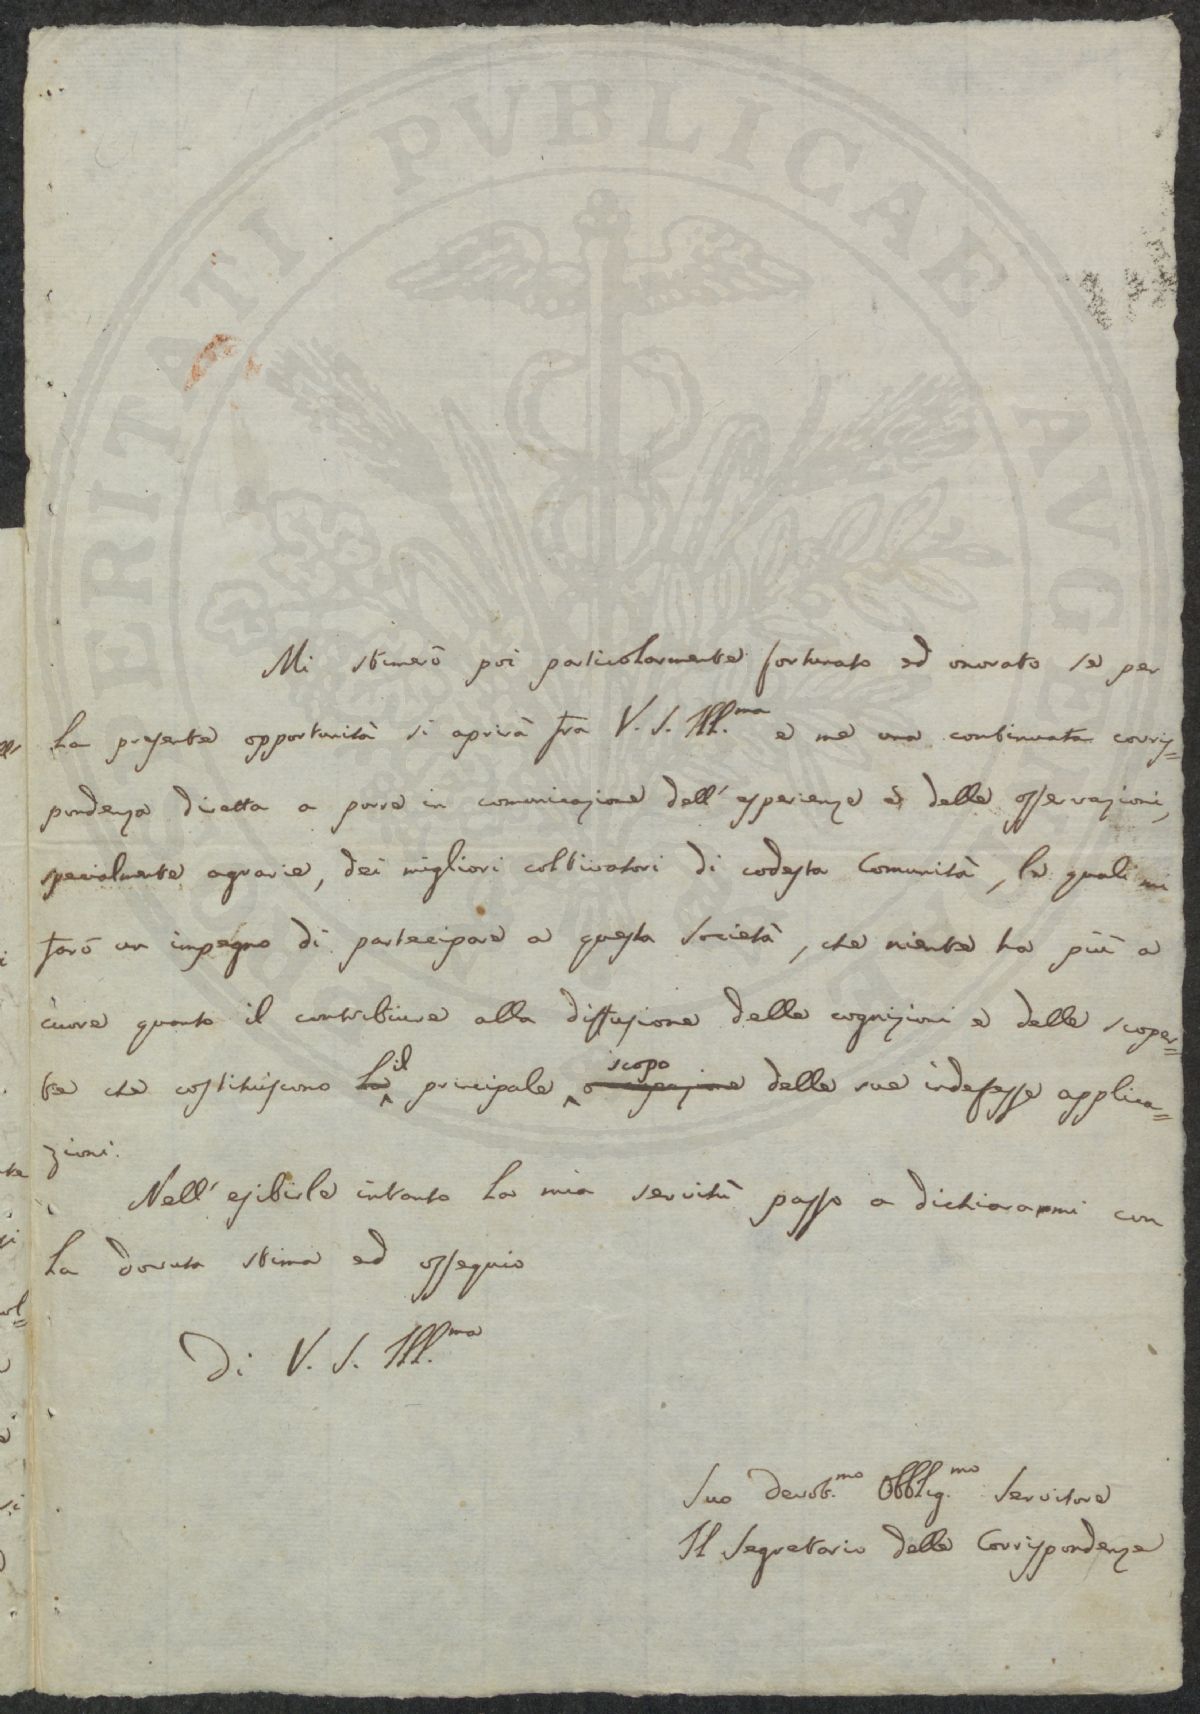 Mi stimerò poi particolarmente fortunato ed onorato se per
la presente opportunità si aprirà fra V. S. Ill.ma e me una continuata corris=
pondenza diretta a porre in comunicazione dell'esperienze e delle osservazioni,
specialmente agrarie, dei migliori coltivatori di codesta Comunità, le quali mi
farò un impegno di partecipare a questa Società, che niente ha più a
cuore quanto il contribuire alla diffusione delle cognizioni e delle scoper=
te che costituiscono la il principale scopo delle sue indefesse applica=
zioni.
Nell'esibirle intanto la mia servitù passo a dichiararmi con
la dovuta stima ed ossequio
Di V. S. Ill.ma
Suo devot.mo Obblig.mo Servitore
Il Segretario delle Corrispondenze
PROSPERITATI PVBLICAE AVGENDAE